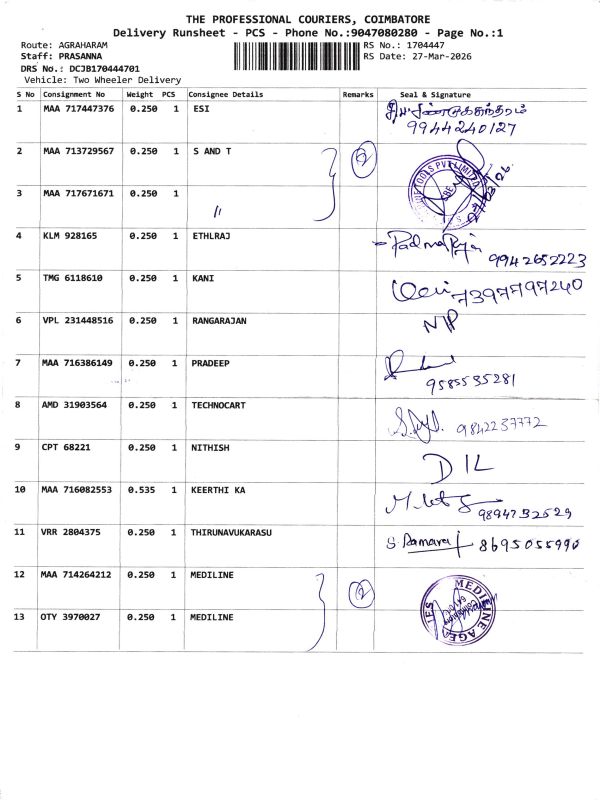 THE PROFESSIONAL COURIERS, COIMBATORE
Delivery Runsheet - PCS - Phone No.:9047080280 - Page No.:1
Route: AGRAHARAM RS No.: 1704447
Staff: PRASANNA RS Date: 27-Mar-2026
DRS No.: DCJB170444701
Vehicle: Two Wheeler Delivery
S No Consignment No Weight PCS Consignee Details Remarks Seal & Signature
1 MAA 717447376 0.250 1 ESI
9944240127
2 MAA 713729567 0.250 1 S AND T 2
3 MAA 717671671 0.250 1 〃
4 KLM 928165 0.250 1 ETHLRAJ Padmaraja 9942652223
5 TMG 6118610 0.250 1 KANI 7397797240
6 VPL 231448516 0.250 1 RANGARAJAN NP
7 MAA 716386149 0.250 1 PRADEEP 9585535281
8 AMD 31903564 0.250 1 TECHNOCART 9842237772
9 CPT 68221 0.250 1 NITHISH DIL
10 MAA 716082553 0.535 1 KEERTHI KA 9894732529
11 VRR 2804375 0.250 1 THIRUNAVUKARASU S. Ramaraj 8695055990
12 MAA 714264212 0.250 1 MEDILINE 2 MEDILINE AGENCIES
13 OTY 3970027 0.250 1 MEDILINE